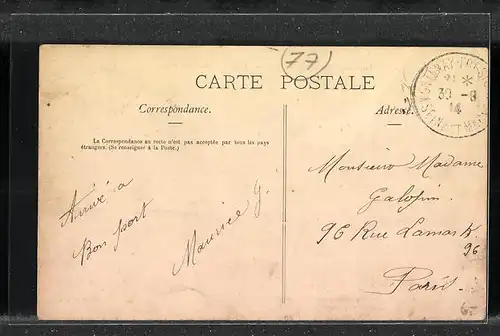 (77)
CARTE POSTALE
Correspondance.
La Correspondance au recto n'est pas acceptée par tous les pays
étrangers. (Se renseigner à la Poste.)
Arrivé a
Bon port
Maurice G.
Adresse.
Monsieur Madame
Galopin.
96 Rue Lamark
96
Paris.
6-
30 -8
14